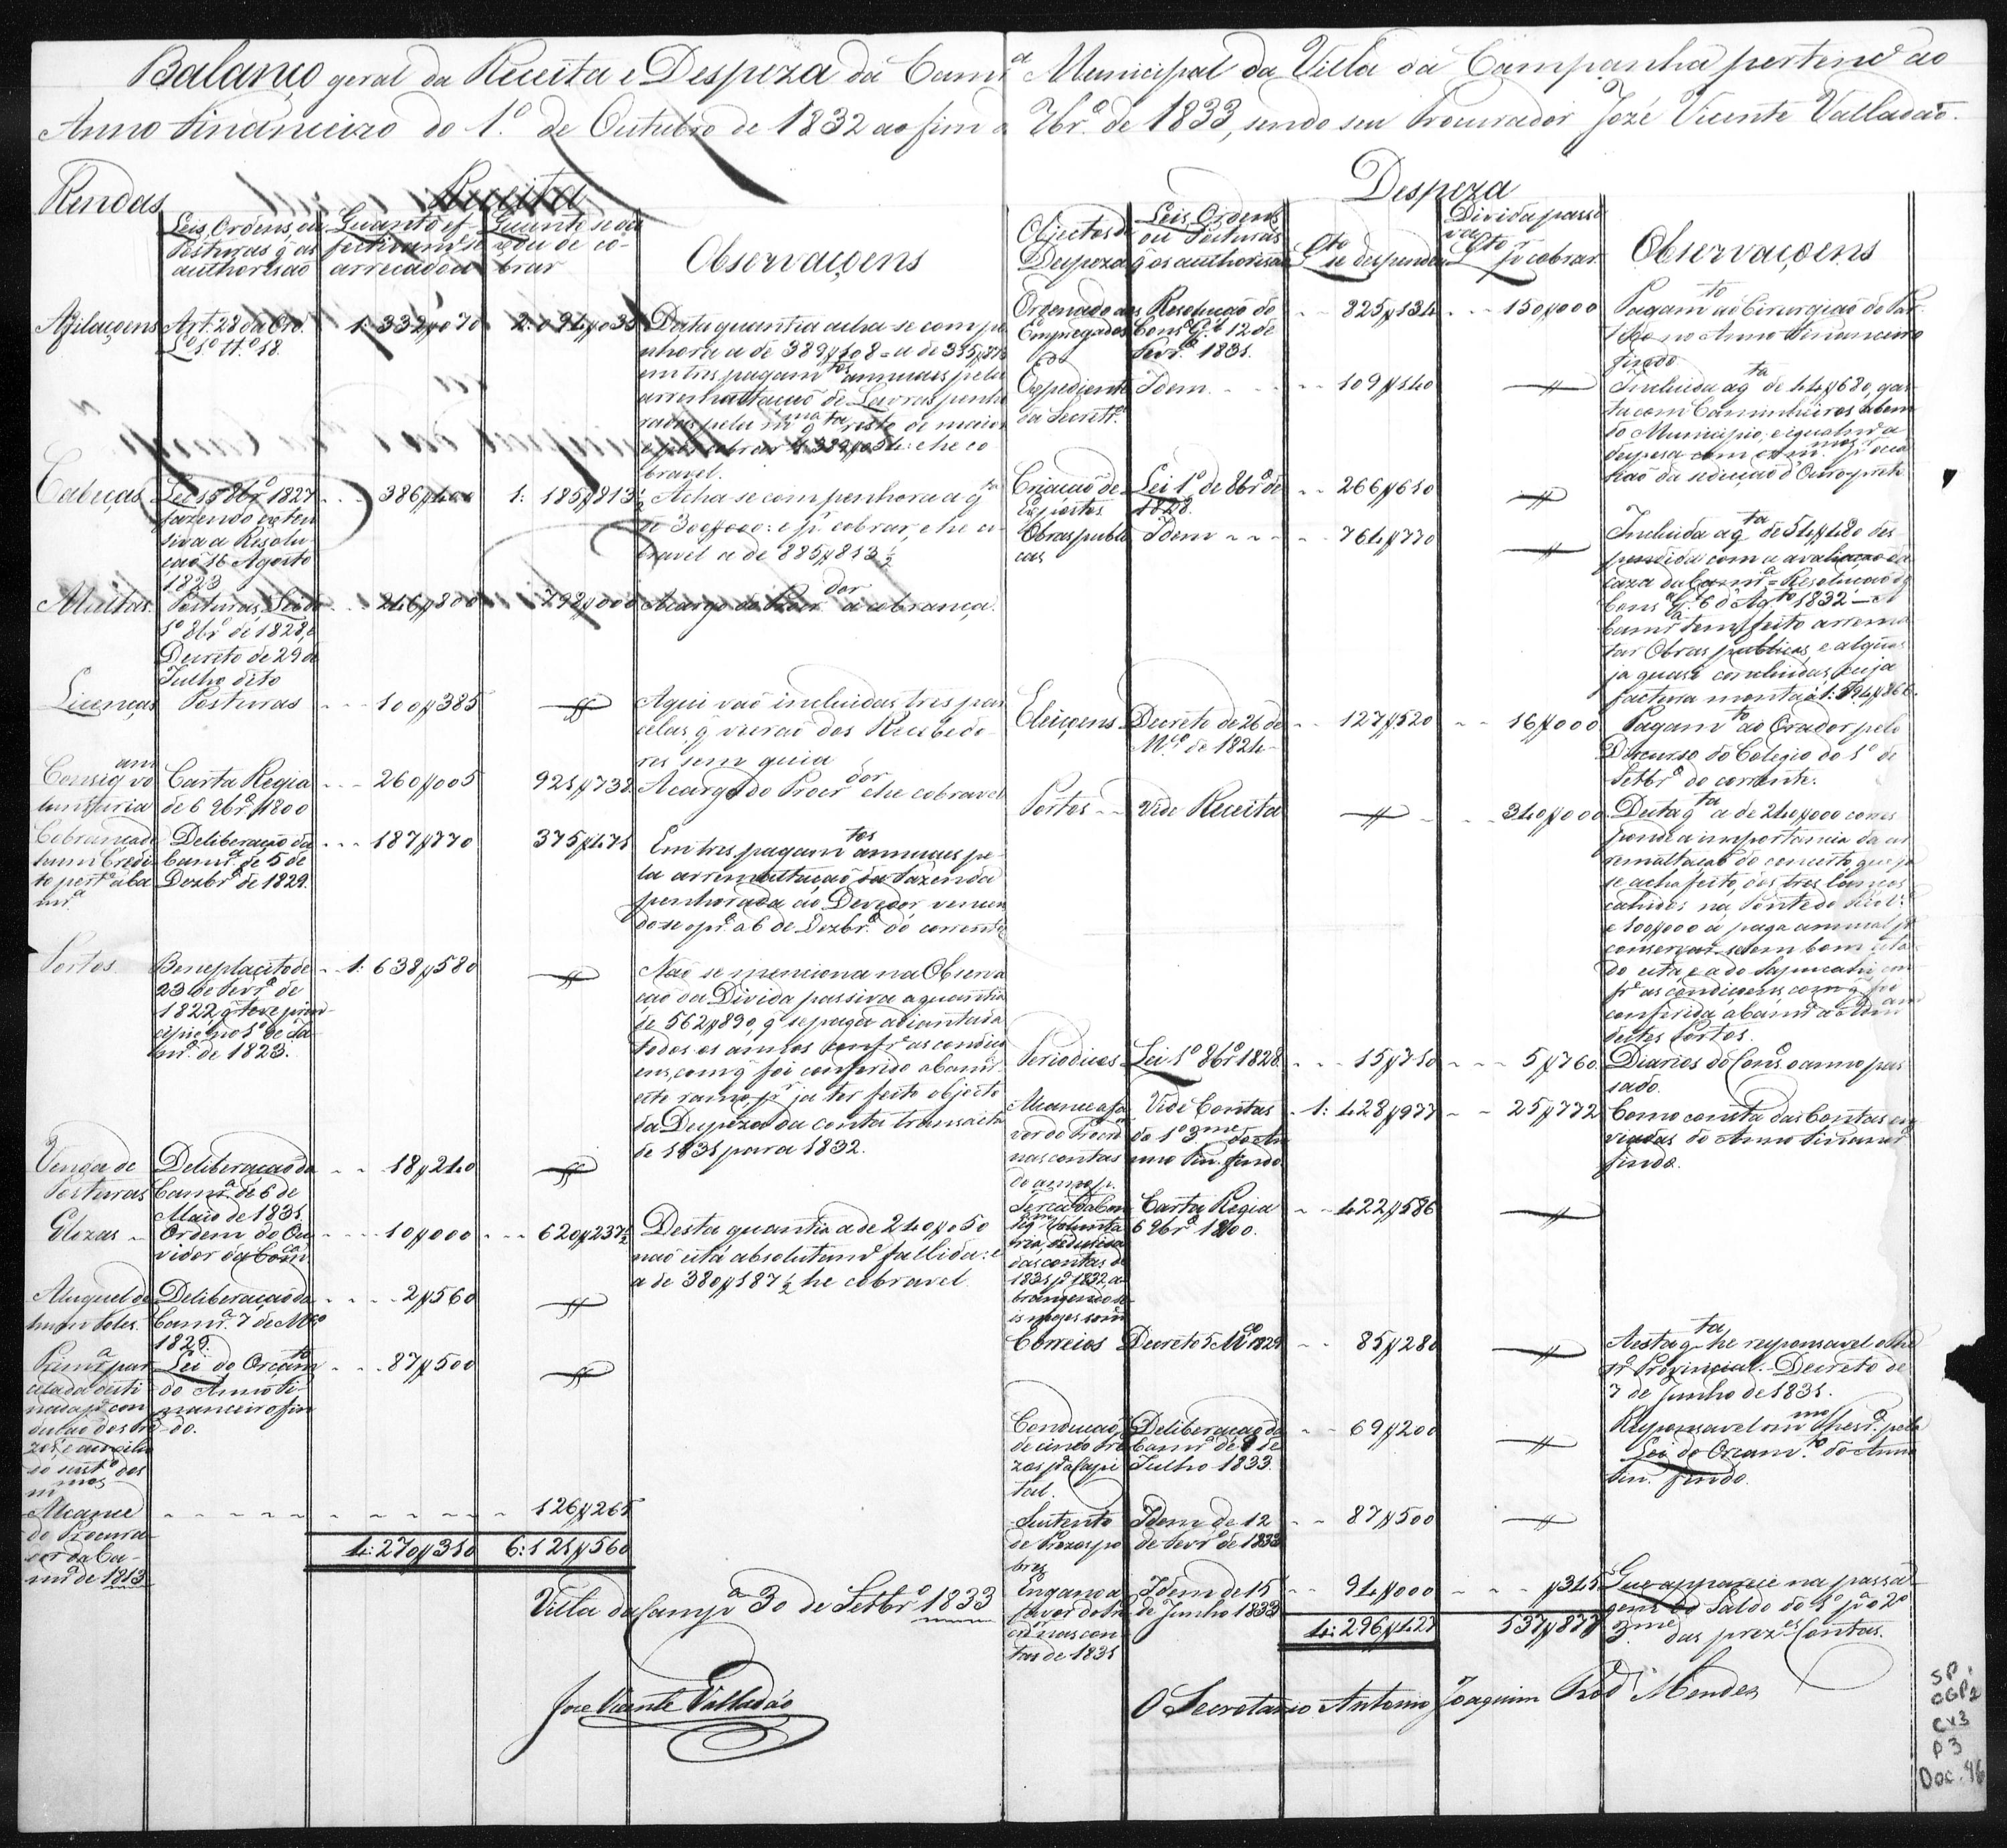 Balanço geral da Receita e Despeza da Camrª Municipal da Villa da Campanha pertence ao
Anno Financeiro do 1.º de Outubro de 1832 ao fim de 7br.º de 1833, sendo seu Procurador Jozé Vicente Valladaõ.
Rendas
Receita
Leis, Ordens, ou
Posturas q̃ as
authorisaõ
Quanto ef
fectivam.e se
arrecadou
Quanto se dei
xou de co-
brar
Observaçoens
Afilaçoens
Art. 28 da Ord.
L.º 1.º tt.º 18.
1: 332$070
2: 094$035
Desta quantia acha-se com pe
nhora a de 389$108 = a de 315$875
em tres pagam.tos annuaes pela
arremattaçaõ de Lavras penho
radas pela m.ma q.ta resto de maior
he co
bravel.
Cabeças
Lei 1º 8br.º 1827
fazendo exten
siva a Resolu-
çaõ 16 Agosto
1823
386$400
1: 185$813½
Acha-se com penhora a q.ta
de 300$000: e p.r cobrar, e he co
bravel a de 885$813½
Multas.
Posturas, Lei do
1º 8br.º de 1828, e
Decreto de 29 de
Julho dito
246$800
792$000
Acargo do Procr.dor a cobrança.
Licenças
Posturas
100$385
Aqui vaõ incluidas tres par
celas, q̃ vieraõ dos Recebedo-
res sem guia
Consig.am vo
luntaria
Carta Regia
de 6 9br.º 1800
260$005
921$738
Acargo do Procr.dor e he cobravel
Cobrança de
hum Credi
to pert.e á Ca
mr.ª
Deliberaçaõ da
Camr.ª de 5 de
Dezbr.º de 1829.
187$770
375$471
Em tres pagam.tos annuaes pe-
la arremattaçaõ da Fazenda
penhorada ao Devedor vencen
do-se o pr.º a 6 de Dezbr.º do corrente
Portos
Beneplacito de
23 de Fevr.º de
1822 q̃ teve prin
cipio no 1.º de Ja
nr.º de 1823.
1: 638$580
Naõ se menciona na Observa
çaõ da Divida passiva a quantia
de 562$890, q̃ se paga adiantada
todos os annos conf.e as condiço
ens, com q̃ foi conferido á Camr.ª
este ramo, p.r ja ter feito objecto
da Despeza da conta transacta
de 1831 para 1832.
Venda de
Posturas
Deliberaçaõ da
Camr.ª de 6 de
Maio de 1831.
18$240
Glozas
Ordem do Ou
vidor da Com.ca
10$000
620$237½
Desta quantia a de 240$050
naõ está absolutam.e fallida: e
a de 380$187½ he cobravel
Aluguel de
Deliberaçaõ da
Camr.ª 7 de M.ço
1829.
2$560
Primr.ª par
cela da desti
nada p.ª con
duçaõ dos Pre
zos, e auxilio
do sust.o dos
m.mos
Lei do Orçam.to
do Anno Fi-
nanceiro fin
do.
87$500
Alcance
do Procura-
dor da Ca-
mr.ª de 1813
126$265
4: 270$310
6: 121$560
Villa da Camp.ª 30 de Setbr.º 1833
Joze Vicente Valladão
Despeza
Objectos de
Despeza
Leis, Ordens
ou Posturas
q̃ as authorisaõ
Q.to
se despendeu
Divida passi
va
Q.to p.r cobrar
Observaçoens
Ordenado aos
Empregados
Resoluçaõ do
Cons.º G.al 12 de
Fevr.º 1831.
825$134
150$000
Pagam.to ao Cirurgiaõ do Par
tido no Anno Financeiro
findo
Expediente
da Secretr.ª
Idem
109$140
Incluida a q.ta de 44$680, gas
ta com Caminheiros a bem
do Municipio, e igualm.e a
sidiaõ da sediçaõ d'Ouropreto
Criaçaõ de
Expostos
Lei 1º de 8br.º de
1828.
266$610
Obras publi
cas
Idem
764$770
Incluida a q.ta de 54$480 des
pendida com a avaliaçaõ da
caza da Camr.ª = Resoluçaõ do
Cons.º G.al 6 d'Ag.to 1832 - A
Camr.ª tem feito arrema
tar Obras publicas, e algumas
ja quasi concluidas, cuja
factura monta á 1: 594$866.
Eleiçoens
Decreto de 26 de
M.ço de 1824
127$520
16$000
Pagam.to ao Orador pelo
Discurso do Colegio do 1º de
Setbr.º do corrente.
Portos
Vide Receita
340$000
Desta q.ta a de 240$000 corres
ponde a importancia da ar
remattaçaõ do concerto que ja
se acha feito, dos tres lanços
cahidos na Ponte do
e 100$000 a paga annual p.r
conservar-se em bom esta
do esta, e a do Sapucahi con
fr.e as condiçoens com q̃ foi
conferida á Camr.ª a Adm.am
destes Portos.
Periodicos
Lei 1º 8br.º 1828
15$710
5$760
Diarios do Cons.º o anno pas
sado.
Alcance a fa
vor do Procr.
nas contas
do anno p.
Vide Contas
do 1º 3.me do An
no Fin. findo.
1: 428$977
25$772
Como consta das Contas en
viadas do Anno Financr.º
findo.
Terça da Con
sig.am Volunta
ria, deduzida
das contas de
1831 p.ª 1832, a
brangendo se
is mezes som.e
Carta Regia
6 9br.º 1800.
422$586
Correios
Decreto 5 M.ço 1829
85$280
A esta q.ta he responsavel o The
sr.º Provincial. Decreto de
7 de Junho de 1831.
Conduçaõ
de cinco Pre
zos p.ª a Capi
tal.
Deliberaçaõ da
Camr.ª de 9 de
Julho 1833.
69$200
Responsavel o m.mo Thesr.º pela
Lei do Orçam.to do Anno
Fin. findo.
Sustento
de Prezos po
bres
Idem de 12
de Fevr.º de 1833
87$500
Engano a
favor do Pro
cr.or nas con
tas de 1831
Idem de 15
de Junho 1833
94$000
$345
Que apparece na passa
gem do Saldo do 1º p.ª o 2º
3.me das prez.es Contas.
4: 296$427
537$877
O Secretario Antonio Joaquim Rod.s Mendes
SP
CGP2
Cx3
P3
Doc. 46